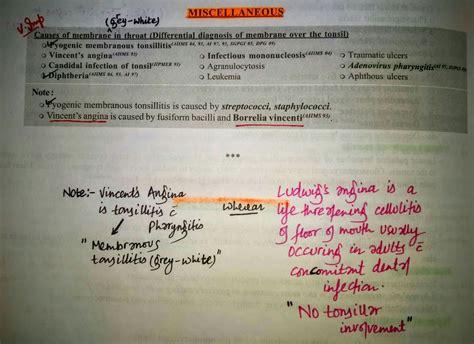 MISCELLANEOUS
V. Imp
(grey-white)
Causes of membrane in throat (Differential diagnosis of membrane over the tonsil)
Pyogenic membranous tonsillitis
Vincent's angina (AIIMS 93)
Infectious mononucleosis (AIIMS 04)
Traumatic ulcers
Candidal infection of tonsil
Agranulocytosis
Adenovirus pharyngitis
Diphtheria (AIIMS 04, 93, AI 97)
Leukemia
Aphthous ulcers
Note:
Pyogenic membranous tonsillitis is caused by streptococci, staphylococci.
Vincent's angina is caused by fusiform bacilli and Borrelia vincenti (AIIMS 93).
***
Note:- Vincent's Angina
is tonsillitis c̄
Pharyngitis
"Membranous
tonsillitis (grey-white)"
Whereas
Ludwig's angina is a
life threatening cellulitis
of floor of mouth usually
occuring in adults c̄
concomitant dental
infection.
"No tonsillar
involvement"